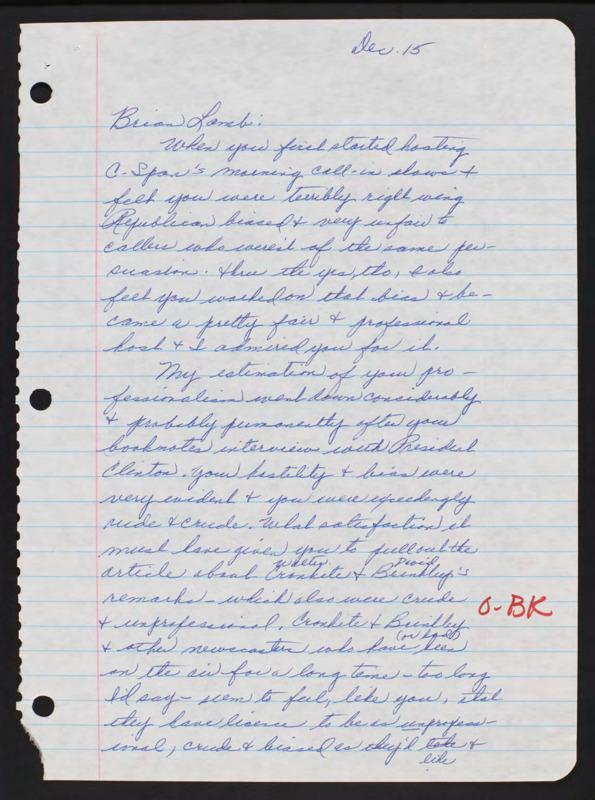 Dec. 15
Brian Lamb:
When you first started hosting
C-Span's morning call-in shows I
felt you were terribly right wing
Republican biased & very unfair to
callers who weren't of the same per-
suasion. Thru the yrs, tho, I also
felt you worked on that bias & be-
came a pretty fair & professional
host & I admired you for it.
My estimation of your pro-
fessionalism went down considerably
& probably permanently after your
booknotes interview with President
Clinton. Your hostility & bias were
very evident & you were exceedingly
rude & crude. What satisfaction it
must have given you to pull out the
article about Walter Cronkite & David Brinkley's
remarks - which also were crude
O-BK
& unprofessional. Cronkite & Brinkley
& other newscasters who have been (or had)
on the air for a long time - too long
I'd say - seem to feel, like you, that
they have licence to be as unprofess-
ional, crude & biased as they'd &
like